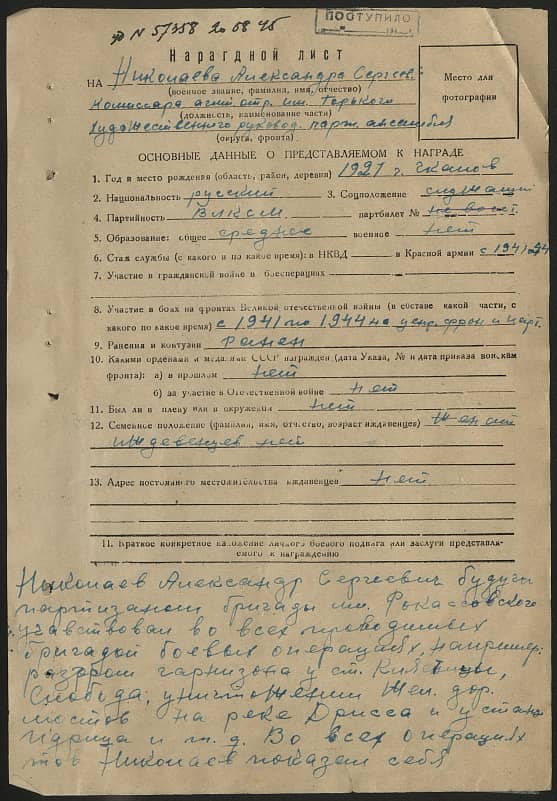 № 57358 20 08 45
ПОСТУПИЛО
Нарагдной лист
НА Николаева Александра Сергеев.
(военное звание, фамилия, имя, отчество)
Комиссара агит отр. им. Горького
(должность, наименование части)
художественного руковод. парт. ансамбля
(округа, фронта)
Место для
фотографии
ОСНОВНЫЕ ДАННЫЕ О ПРЕДСТАВЛЯЕМОМ К НАГРАДЕ
1. Год и место рождения (область, район, деревня) 1921 г. Чкалов
2. Национальность русский 3. Соцположение служащий
4. Партийность ВЛКСМ партбилет №
5. Образование: общее среднее военное нет
6. Стаж службы (с какого и по какое время): в НКВД в Красной армии с 1941
7. Участие в гражданской войне в боеоперациях
8. Участие в боях на фронтах Великой отечественной войны (в составе какой части, с
какого по какое время) с 1941 по 1944 на центр. фрон и парт.
9. Ранения и контузии Ранен
10. Какими орденами и медалями СССР награжден (дата Указа, № и дата приказа войскам
фронта): а) в прошлом нет
б) за участие в Отечественной войне нет
11. Был ли в плену или в окружении нет
12. Семейное положение (фамилия, имя, отчество, возраст иждивенцев) Женат
иждевенцев нет
13. Адрес постоянного местожительства иждивенцев нет
11. Краткое конкретное изложение личного боевого подвига или заслуги представля-
емого к награждению
Николаев Александр Сергеевич будучи
партизаном бригады им. Рокассовского
учавствовал во всех проводимых
бригадой боевых операциях, например:
разгром гарнизона у ст.
Свобода, уничтожении жел. дор.
мостов на реке Дрисса и у станц
Идрица и т. д. Во всех операциях
тов Николаев показал себя